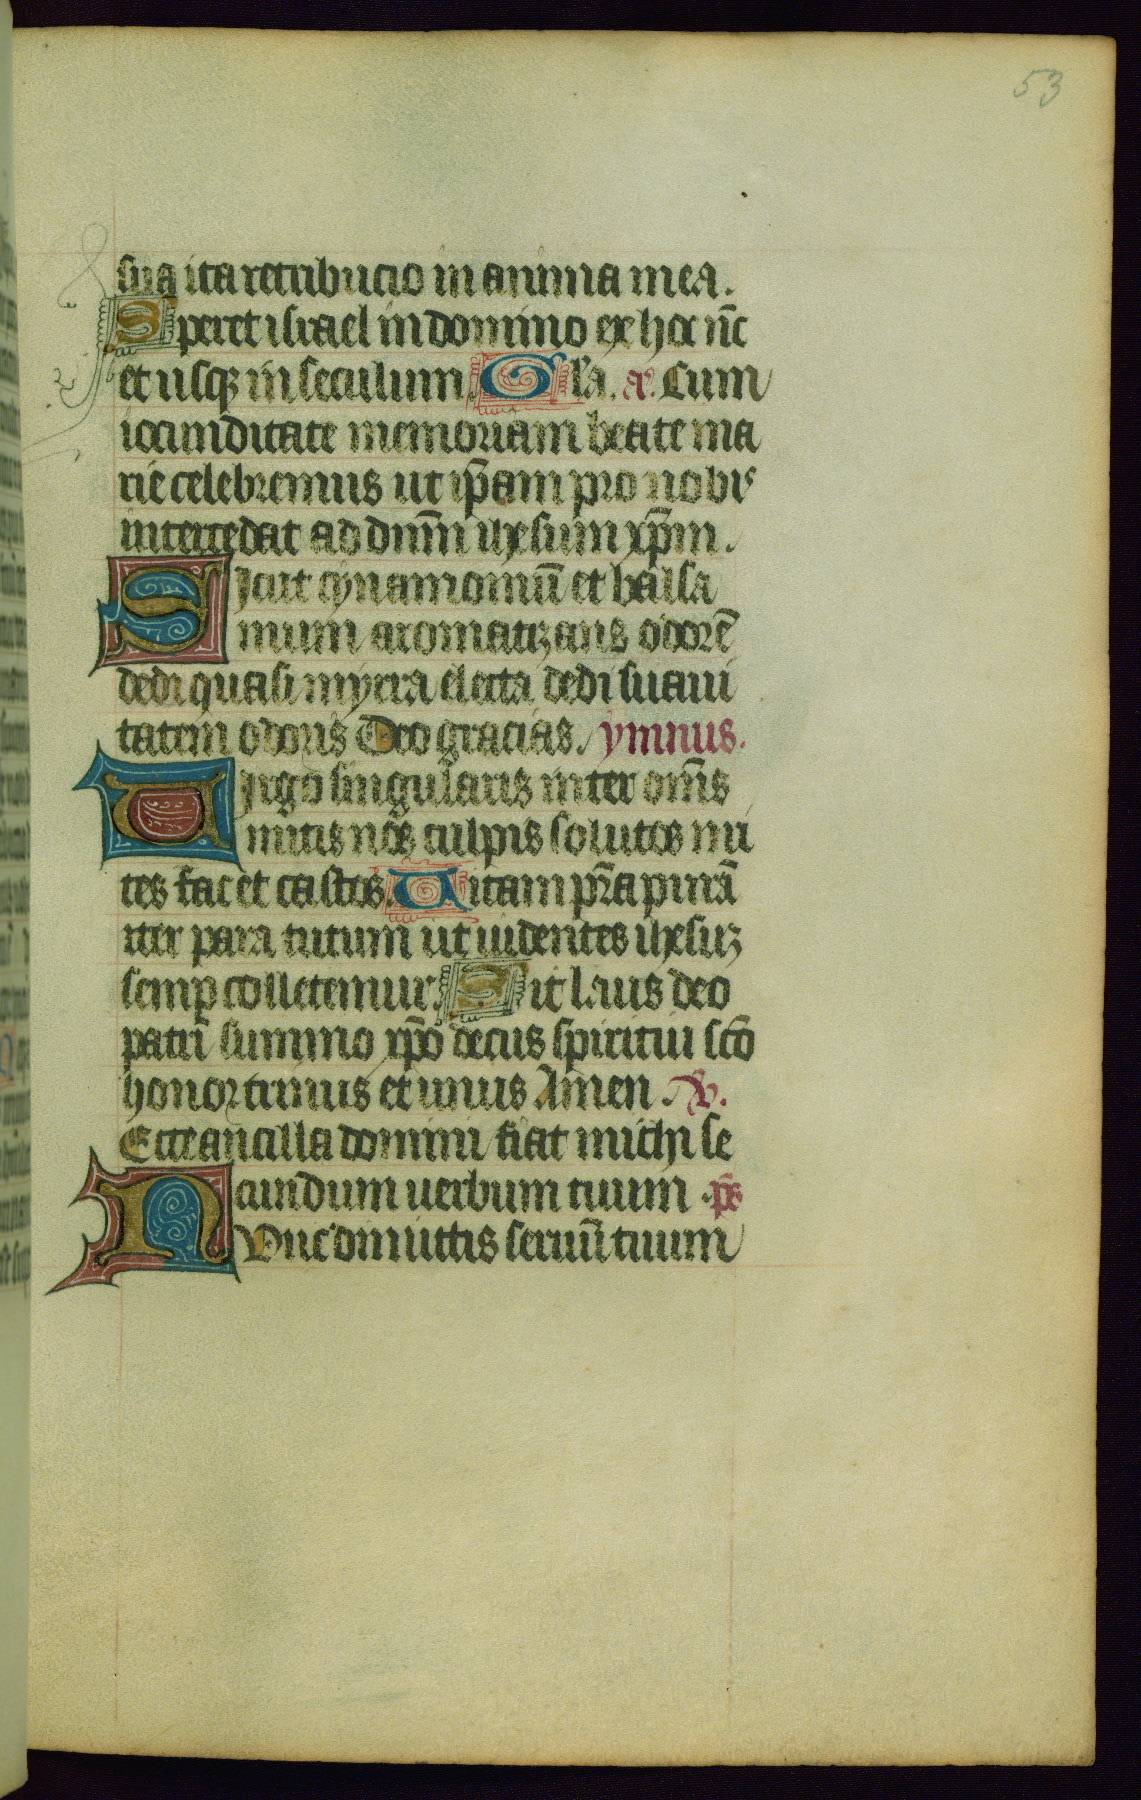 53
sua ita retribucio in anima mea.
Speret israel in domino ex hoc nu̅c
et usqꝫ in seculum. Gl'a. a͞. Cum
iocunditate memoriam beate ma
rie celebremus ut ip̅am pro nobis
intercedat ad dn̅m ihesum xp̅m.
Sicut cynamomu̅ et balsa
mum aromatizans odore̅
dedi quasi myrra electa dedi suaui
tatem odoris Deo gracias. ymnus.
Uirgo singularis inter om̅s
mitis nos culpis solutos mi
tes fac et castos. Uitam pr̅a pura̅
iter para tutum ut uidentes ihesuꝫ
semꝑ colletemur. Sit laus deo
patri summo xp̅o decus spiritui sc̅o
honor trinus et unus Amen. ℣.
Ecce ancilla domini fiat michi se
cundum uerbum tuum. ps̅
Nunc dimittis seruu̅ tuum